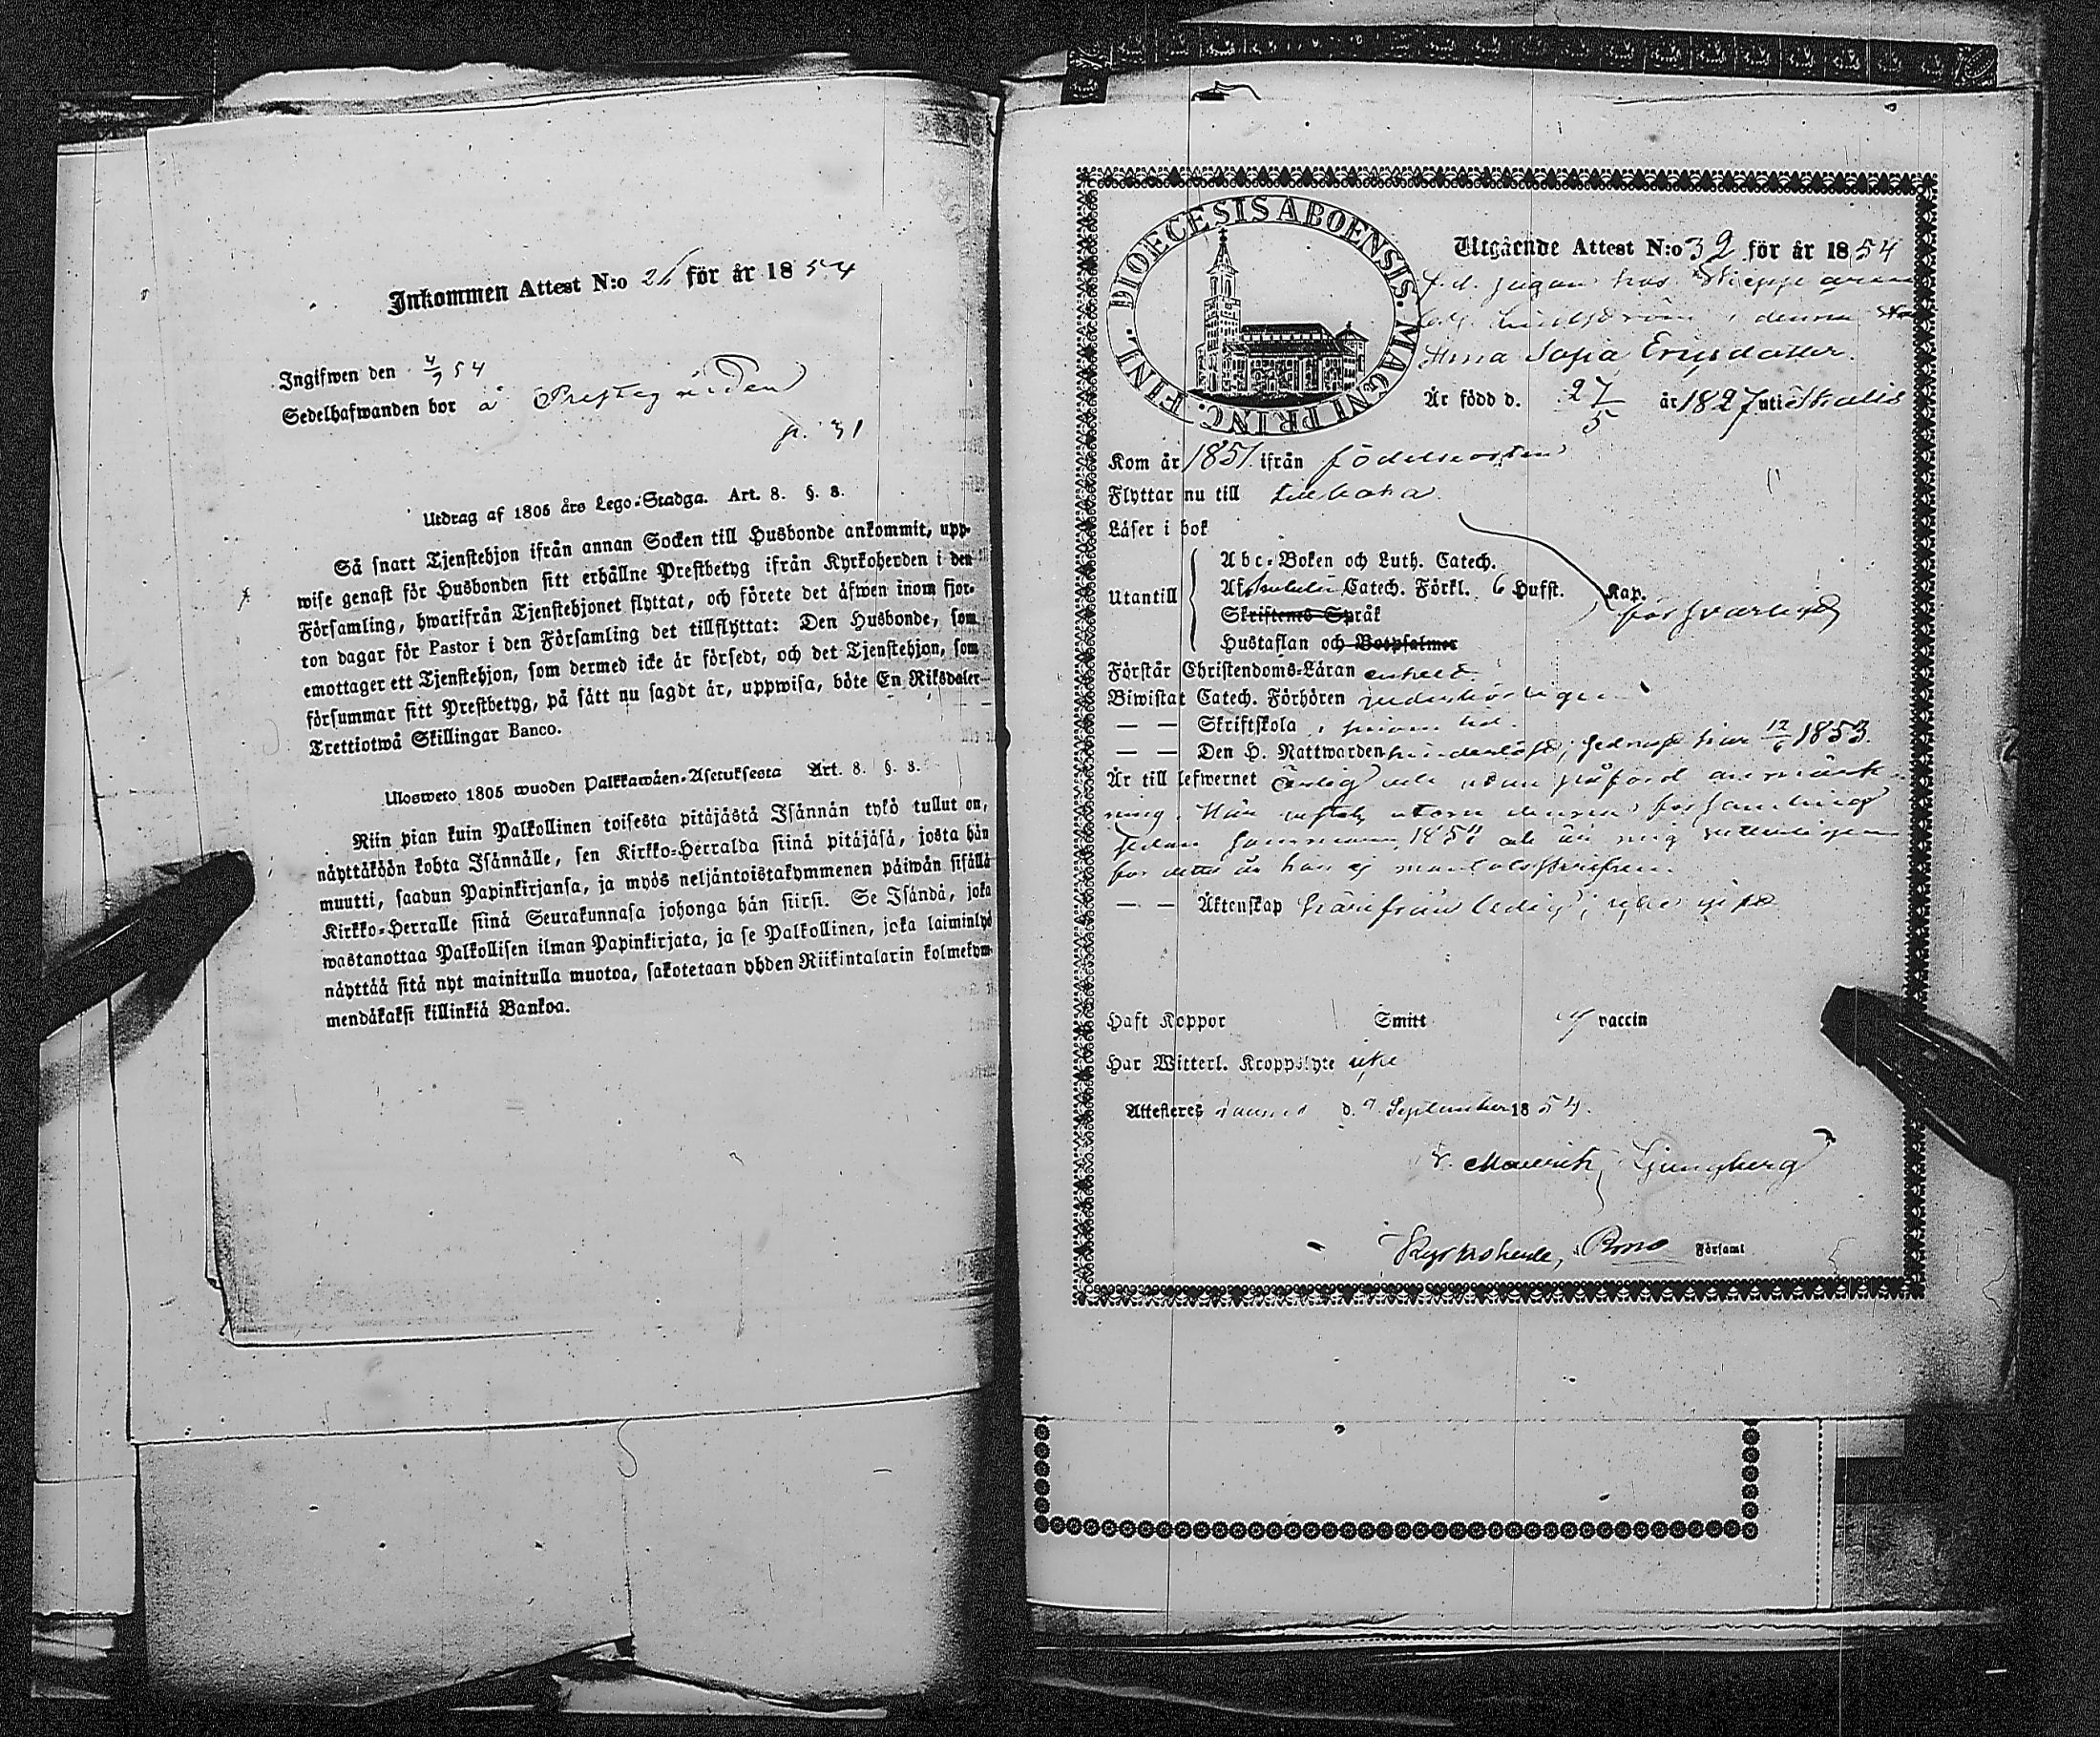 Inkommen Attest N:o 26 för år 1854
Ingifwen den 4/9 54
Sedelhafwanden bor å Prestegården
p. 31
Utdrag af 1805 års Lego-Stadga. Art. 8. §. 8.
Så snart Tjenstehjon ifrån annan Socken till Husbonde ankommit, upp-
wise genast för Husbonden sitt erhållne Prestbetyg ifrån Kyrkoherden i den
Församling, hwarifrån Tjenstehjonet flyttat, och förete det äfwen inom fjor-
ton dagar för Pastor i den Församling det tillflyttat: Den Husbonde, som
emottager ett Tjenstehjon, som dermed icke är försedt, och det Tjenstehjon, som
försummar sitt Prestbetyg, på sätt nu sagdt är, uppwisa, böte En Riksdaler
Trettiotwå Skillingar Banco.
Ulosweto 1805 wuoden Palkkawäen-Asetuksesta Art. 8. §. 8.
Niin pian kuin Palkollinen toisesta pitäjästä Isännän tykö tullut on,
näyttäköön kohta Isännälle, sen Kirkko-Herralda siinä pitäjäsä, josta hän
muutti, saadun Papinkirjansa, ja myös neljäntoistakymmenen päiwän sisällä
Kirkko-Herralle siinä Seurakunnasa johonga hän siirsi. Se Isändä, joka
wastanottaa Palkollisen ilman Papinkirjata, ja se Palkollinen, joka laiminlyö
näyttää sitä nyt mainitulla muotoa, sakotetaan yhden Riikintalarin kolmekym-
mendäkaksi killinkiä Bankoa.
DIOECESIS ABOENSIS. MAGNI PRINC. FINL.
Utgående Attest N:o 32 för år 1854
f. d. pigan hos Skeppare
i denna
Anna Sofia Ericsdotter.
Är född d. 27/5 år 1827 uti
Kom år 1851. ifrån födelseorten
Flyttar nu till
Läser i bok
Utantill
Abc-Boken och Luth. Catech.
Af Catech. Förkl. 6 Hufst. Kap.
Skriftenes Språk försvarligt
Hustaflan och Botpsalmer
Förstår Christendoms-Läran enkelt.
Biwistat Catech. Förhören vederbörligen
— — Skriftskola i sinom tid.
— — Den H. Nattwarden hinderlöst, sednast här 12/6 1853.
Är till lefwernet ärlig och utan påförd anmärk-
ning. Hon utom denna församling
sedan sommaren och är mig
för detta år här ej mantalsskrifven.
— — Äktenskap härifrån ledig,
Haft Koppor Smitt vaccin
Har Witterl. Kroppslyte icke
Attesteras d. September 1854.
Mauritz Ljungberg
Kyrkoherde, i Församl